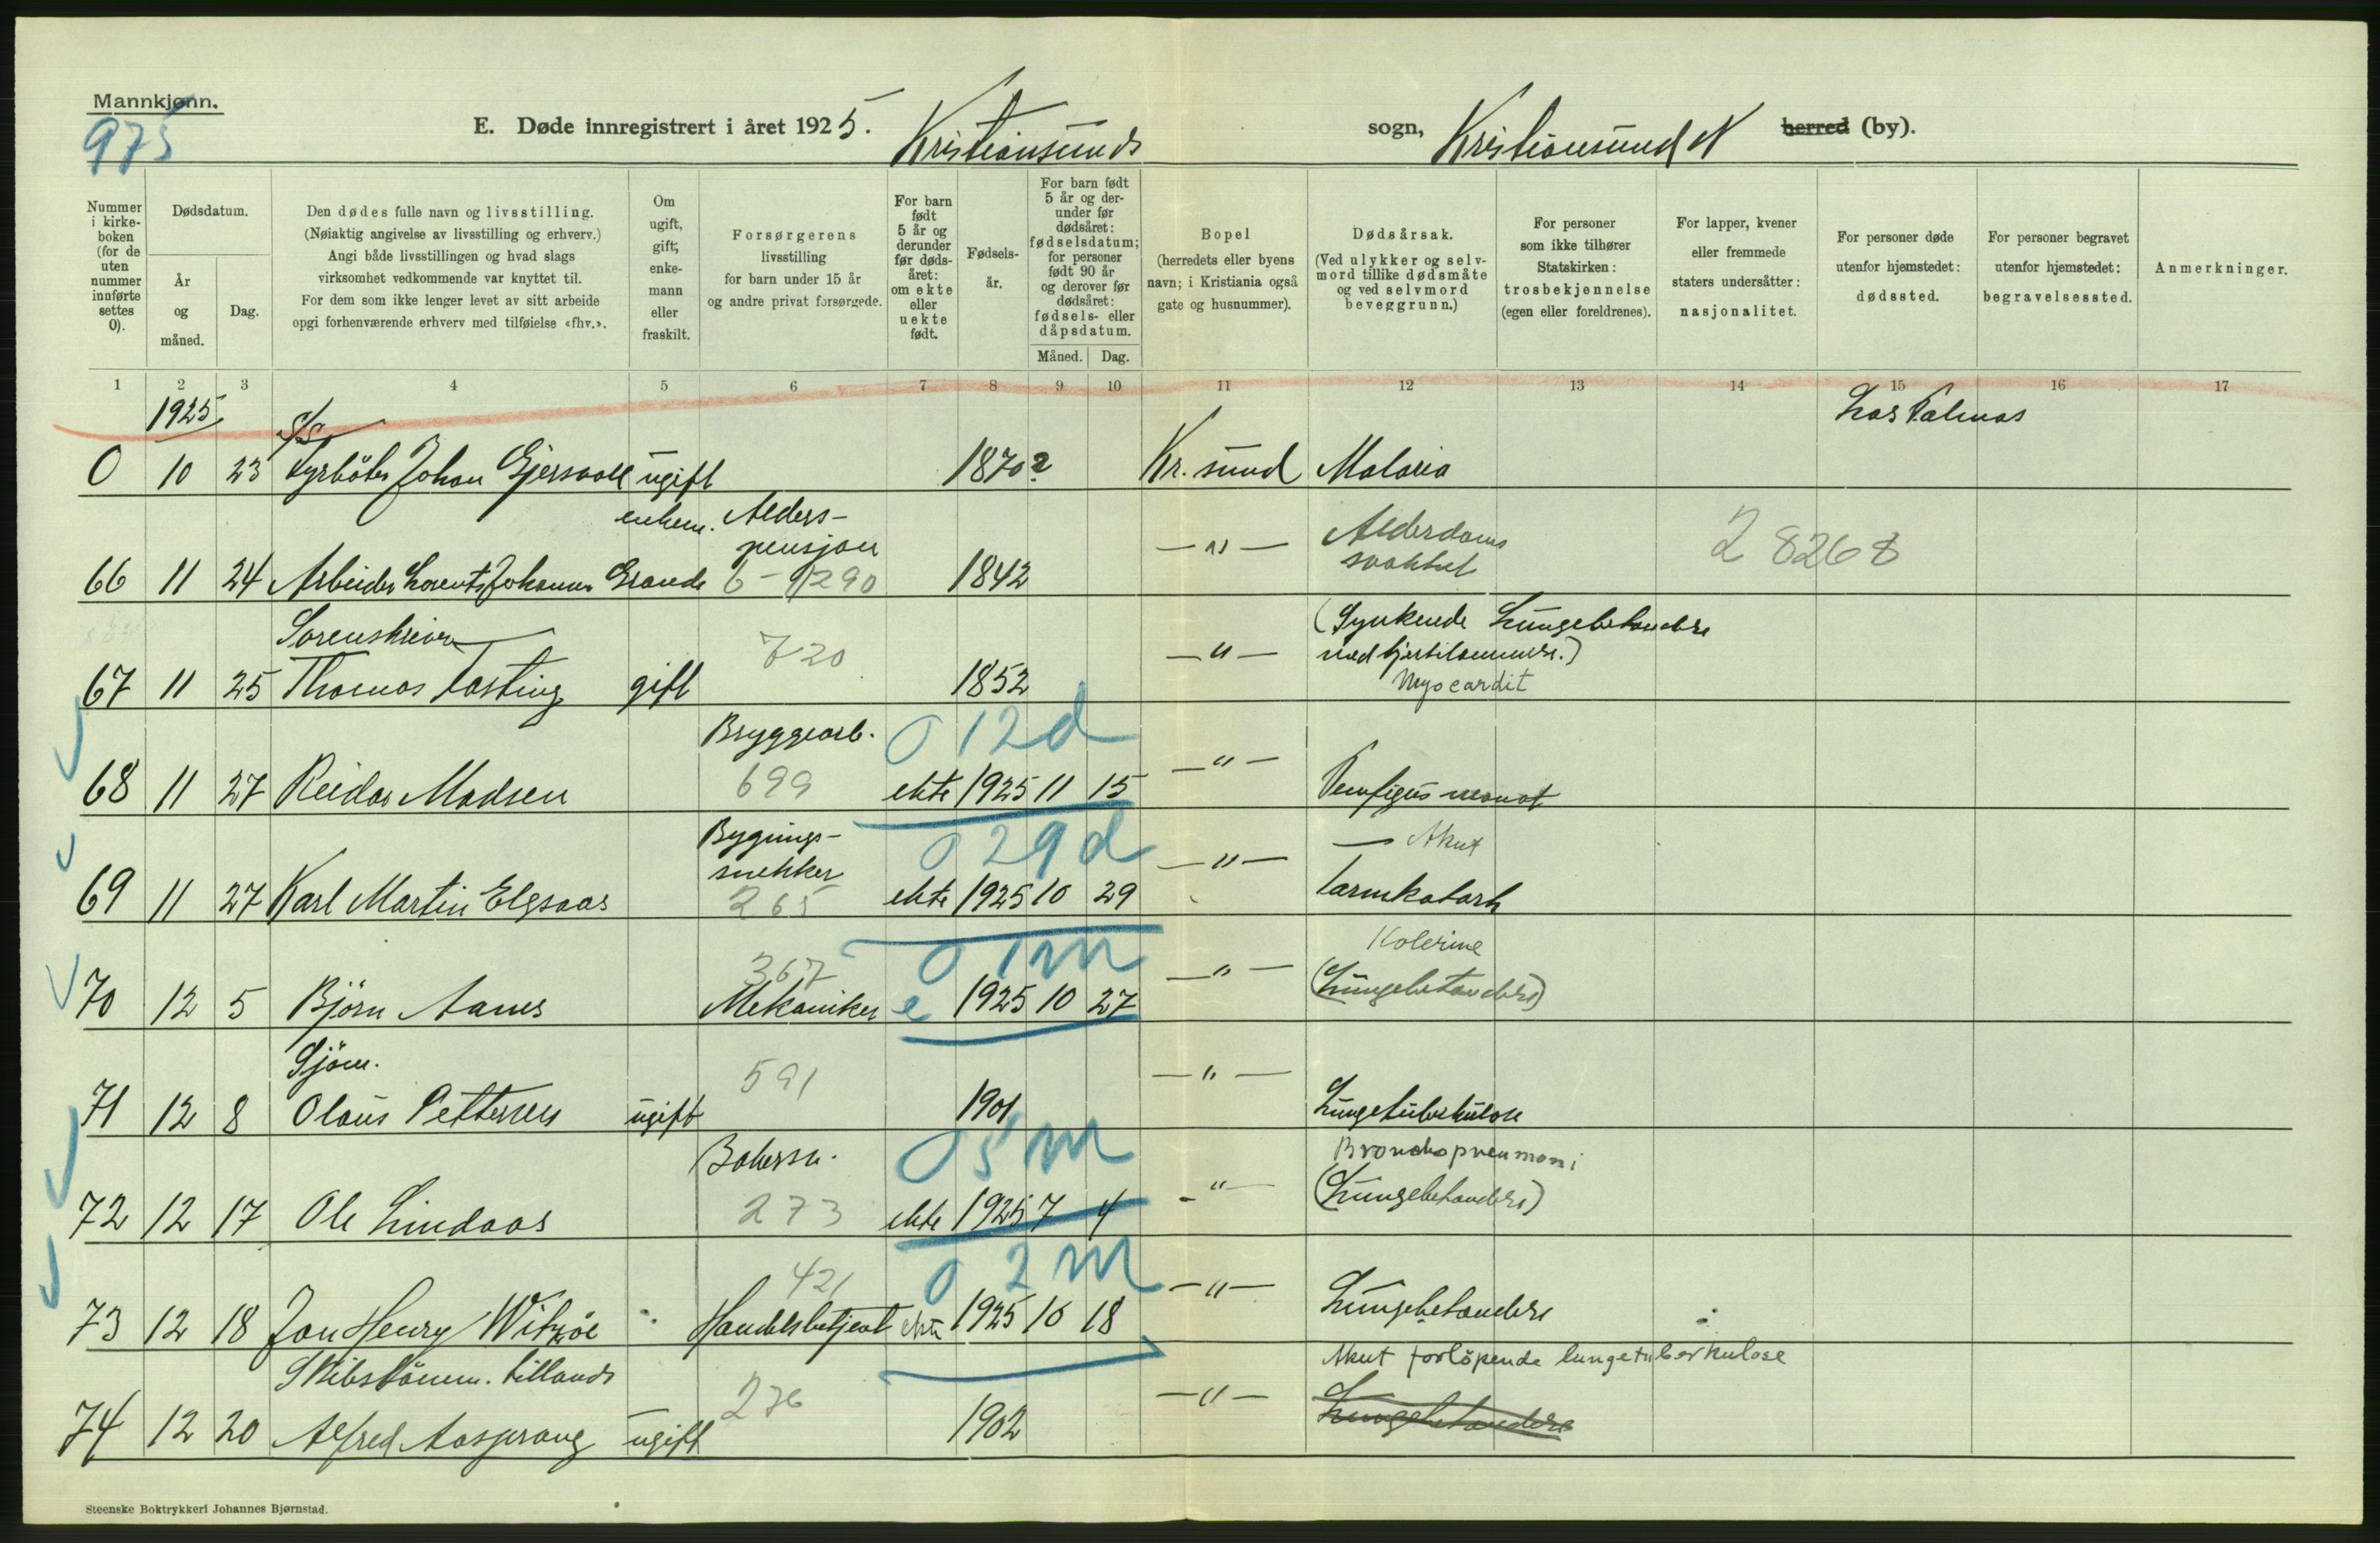 Mannkjønn.
975
E. Døde innregistrert i året 1925. Kristiansunds sogn, Kristiansund N herred (by).
Nummer i kirke-boken (for de uten nummer innførte settes 0).
Dødsdatum.
År og måned.
Dag.
Den dødes fulle navn og livsstilling.
(Nøiaktig angivelse av livsstilling og erhverv.)
Angi både livsstillingen og hvad slags
virksomhet vedkommende var knyttet til.
For dem som ikke lenger levet av sitt arbeide
opgi forhenværende erhverv med tilføielse «fhv.».
Om ugift, gift, enke-mann eller fraskilt.
Forsørgerens
livsstilling
for barn under 15 år
og andre privat forsørgede.
For barn født 5 år og derunder før døds-året: om ekte eller uekte født.
Fødsels-år.
For barn født 5 år og der-under før dødsåret: fødselsdatum; for personer født 90 år og derover før dødsåret: fødsels- eller dåpsdatum.
Måned. Dag.
Bopel
(herredets eller byens
navn; i Kristiania også
gate og husnummer).
Dødsårsak.
(Ved ulykker og selv-
mord tillike dødsmåte
og ved selvmord
beveggrunn.)
For personer
som ikke tilhører
Statskirken:
trosbekjennelse
(egen eller foreldrenes).
For lapper, kvener
eller fremmede
staters undersåtter:
nasjonalitet.
For personer døde
utenfor hjemstedet:
dødssted.
For personer begravet
utenfor hjemstedet:
begravelsessted.
Anmerkninger.
1 2 3 4 5 6 7 8 9 10 11 12 13 14 15 16 17
1925
Las Palmas
0 10 23 Fyrböter Johan Gjersvoll ugift 1870? Kr. sund Malaria
enkem. Alders-
pensjon
Alderdoms
svakhet
2 8268
66 11 24 Arbeider Lorents Johannes Grande 6-9290 1842 —"—
Sorenskriver
720
(Synkende Lungebetendelse
ved hjertelammelse.)
67 11 25 Thomas Fasting gift 1852 —"— Myocardit
Bryggearb. 0 12d
68 11 27 Reidar Madsen 699 ekte 1925 11 15 —"— Pemfigus neonat
Bygnings-
snekker
0 29d
Akut
69 11 27 Karl Martin Elgsaas 265 ekte 1925 10 29 —"— Tarmkatarh
367 0 1m
Kolerine
70 12 5 Björn Aanes Mekaniker e 1925 10 27 —"— (Lungebetendelse)
Sjöm.
591
71 12 8 Olaus Pettersen ugift 1901 —"— Lungetuberkulose
Bakersv. 0 5m
Bronchopneumoni
72 12 17 Ole Lindaas 273 ekte 1925 7 4 —"— (Lungebetendelse)
421 0 2m
73 12 18 Jon Henry Witzöe Handelsbetjent ekte 1925 10 18 —"— Lungebetendelse
Skibstömm. tillands
276
Akut forlöpende lungetuberkulose
74 12 20 Alfred Aasprang ugift 1902 —"— Lungebetendelse
Steenske Boktrykkeri Johannes Bjørnstad.